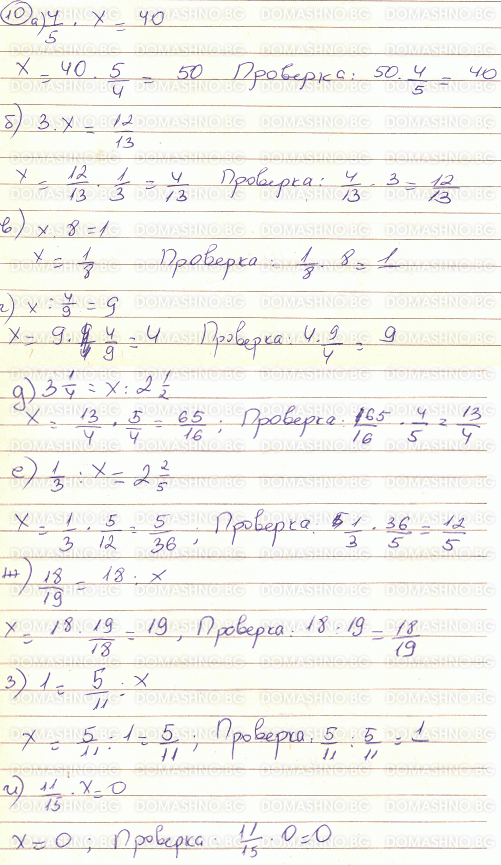 10 а) 4/5 . x = 40
x = 40 . 5/4 = 50 Проверка: 50 . 4/5 = 40
б) 3 . x = 12/13
x = 12/13 . 1/3 = 4/13 Проверка: 4/13 . 3 = 12/13
в) x . 8 = 1
x = 1/8 Проверка: 1/8 . 8 = 1
г) x : 4/9 = 9
x = 9 . 4/9 = 4 Проверка: 4 . 9/4 = 9
д) 3 1/4 = x : 2 1/2
x = 13/4 . 5/4 = 65/16 ; Проверка: 65/16 . 4/5 = 13/4
е) 1/3 : x = 2 2/5
x = 1/3 . 5/12 = 5/36 ; Проверка: 1/3 . 36/5 = 12/5
ж) 18/19 = 18 : x
x = 18 . 19/18 = 19 ; Проверка: 18 : 19 = 18/19
з) 1 = 5/11 : x
x = 5/11 : 1 = 5/11 ; Проверка: 5/11 : 5/11 = 1
и) 11/15 . x = 0
x = 0 ; Проверка: 11/15 . 0 = 0
DOMASHNO.BG